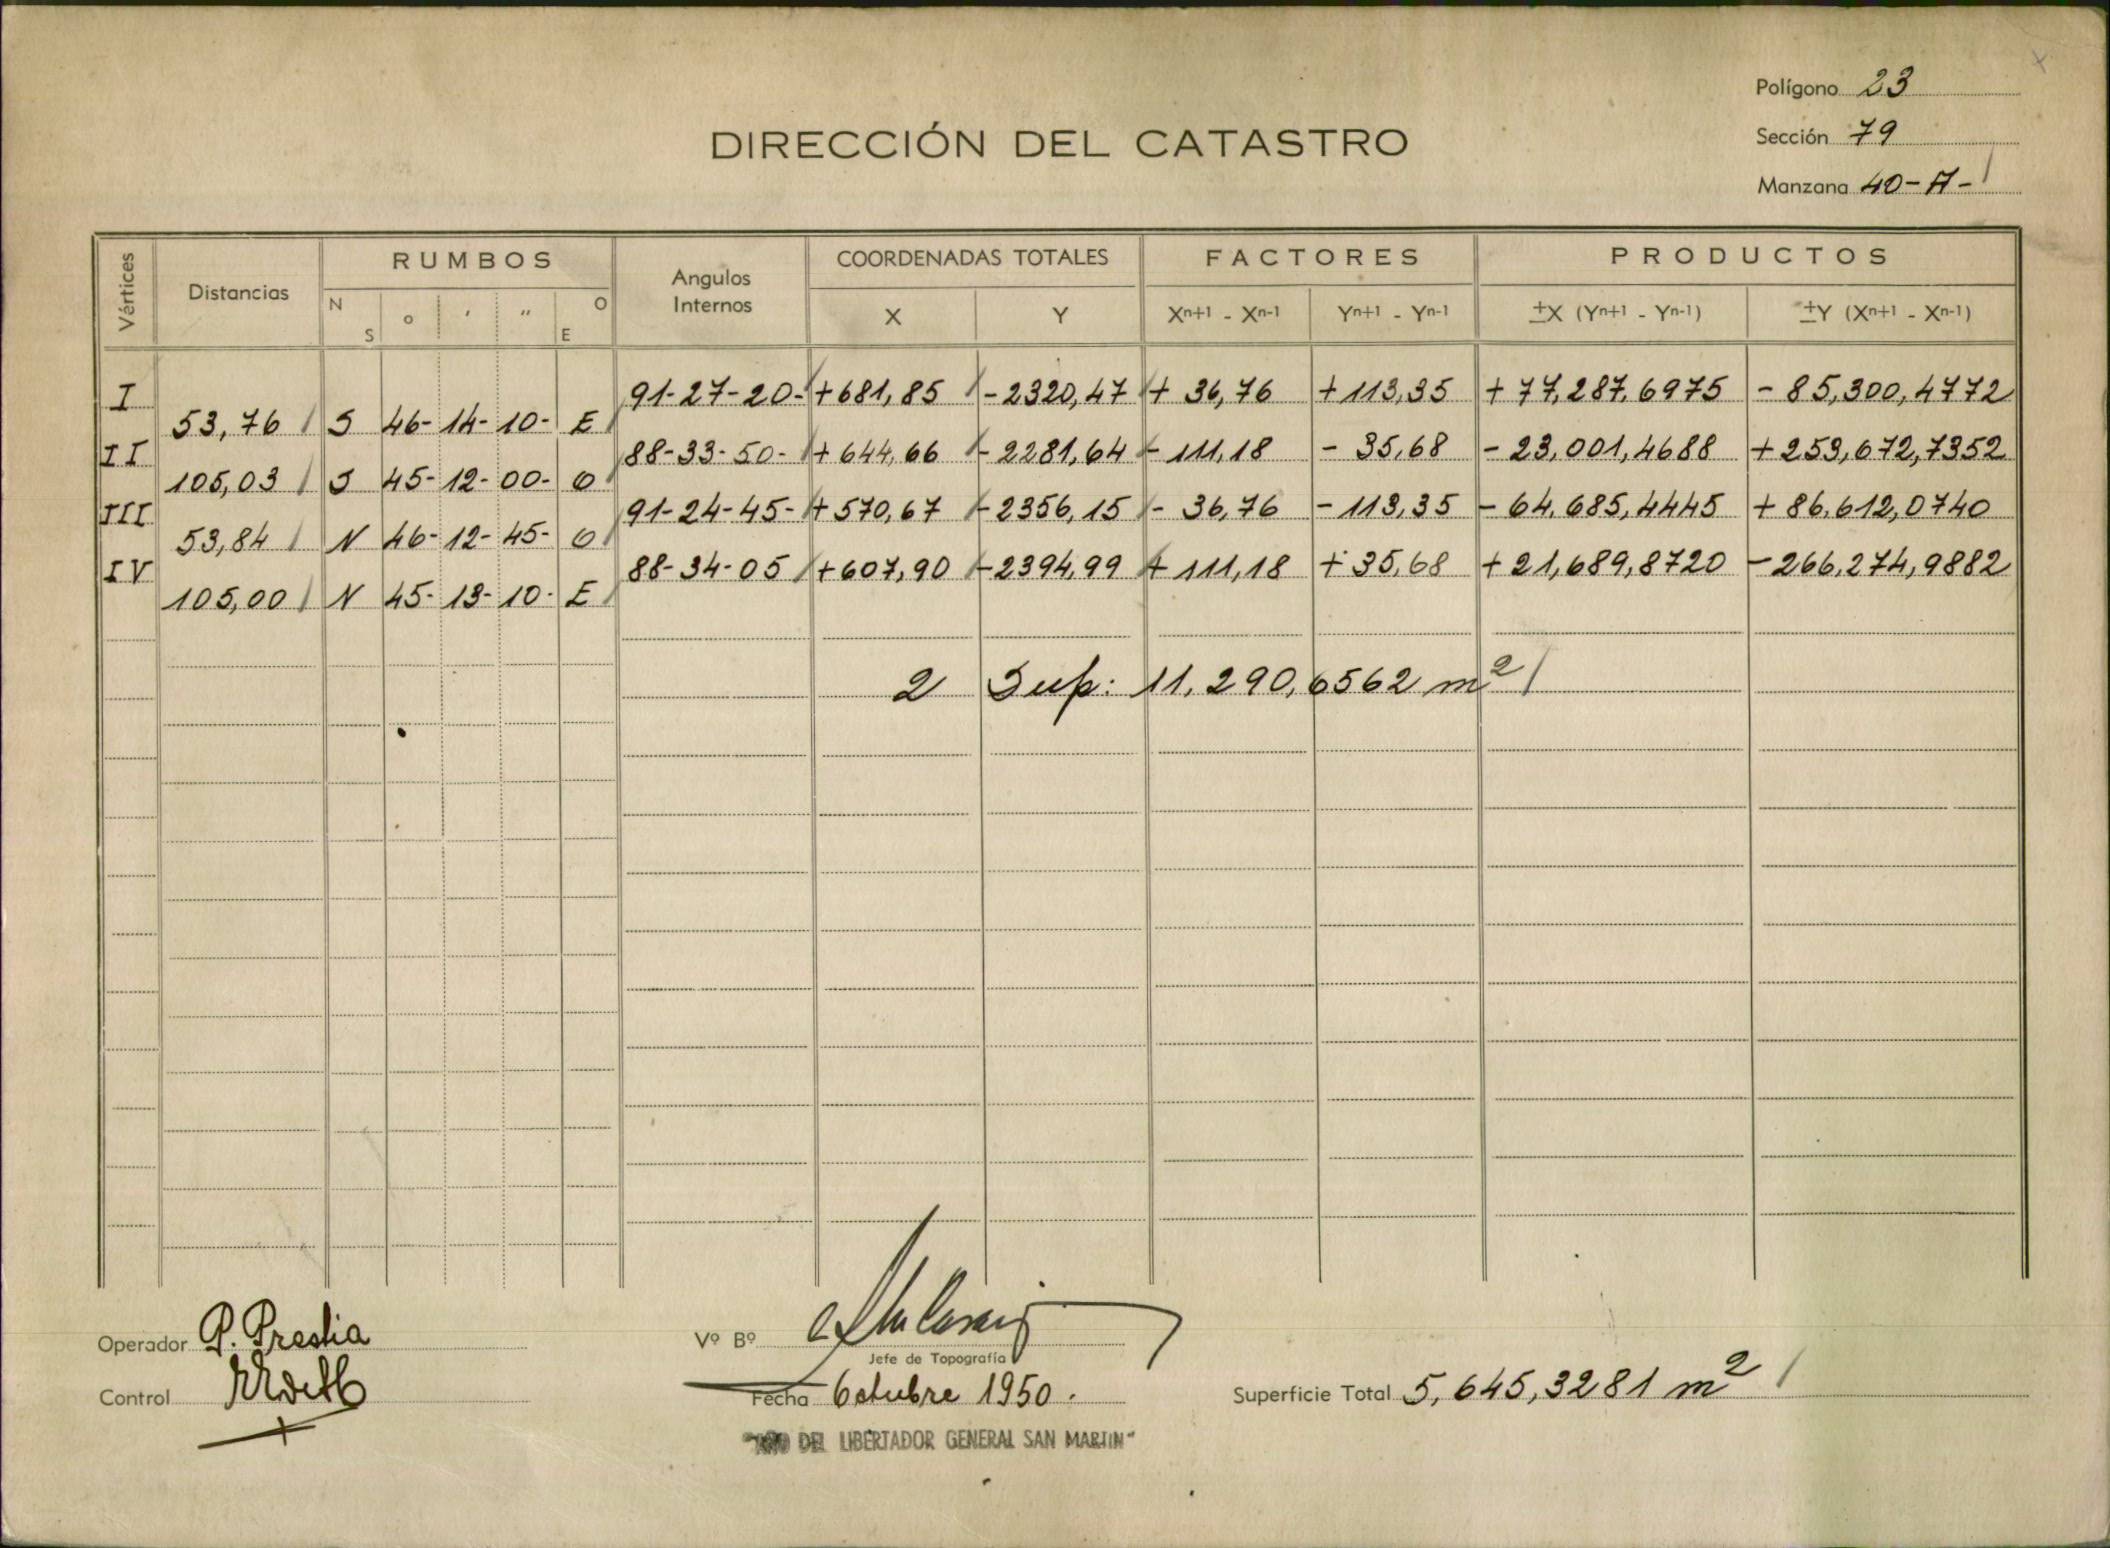 Polígono 23
DIRECCIÓN DEL CATASTRO
Sección 79
Manzana 40-A-
Vértices Distancias RUMBOS Angulos Internos COORDENADAS TOTALES FACTORES PRODUCTOS
N S o ' " O E X Y Xn+1 - Xn-1 Yn+1 - Yn-1 ±X (Yn+1 - Yn-1) ±Y (Xn+1 - Xn-1)
I 91-27-20- +681,85 -2320,47 + 36,76 +113,35 +77,287,6975 -85,300,4772
53,76 S 46- 14- 10- E
II 88-33-50- +644,66 -2281,64 -111,18 - 35,68 -23,001,4688 +253,672,7352
105,03 S 45- 12- 00- O
III 91-24-45- +570,67 -2356,15 - 36,76 -113,35 -64,685,4445 +86,612,0740
53,84 N 46- 12- 45- O
IV 88-34-05 +607,90 -2394,99 +111,18 +35,68 +21,689,8720 -266,274,9882
105,00 N 45- 13- 10- E
2 Sup: 11,290,6562 m²
Operador P. Prestia
Vº Bº
Jefe de Topografía
Control
Fecha Octubre 1950.
Superficie Total 5,645,3281 m²
DEL LIBERTADOR GENERAL SAN MARTIN"